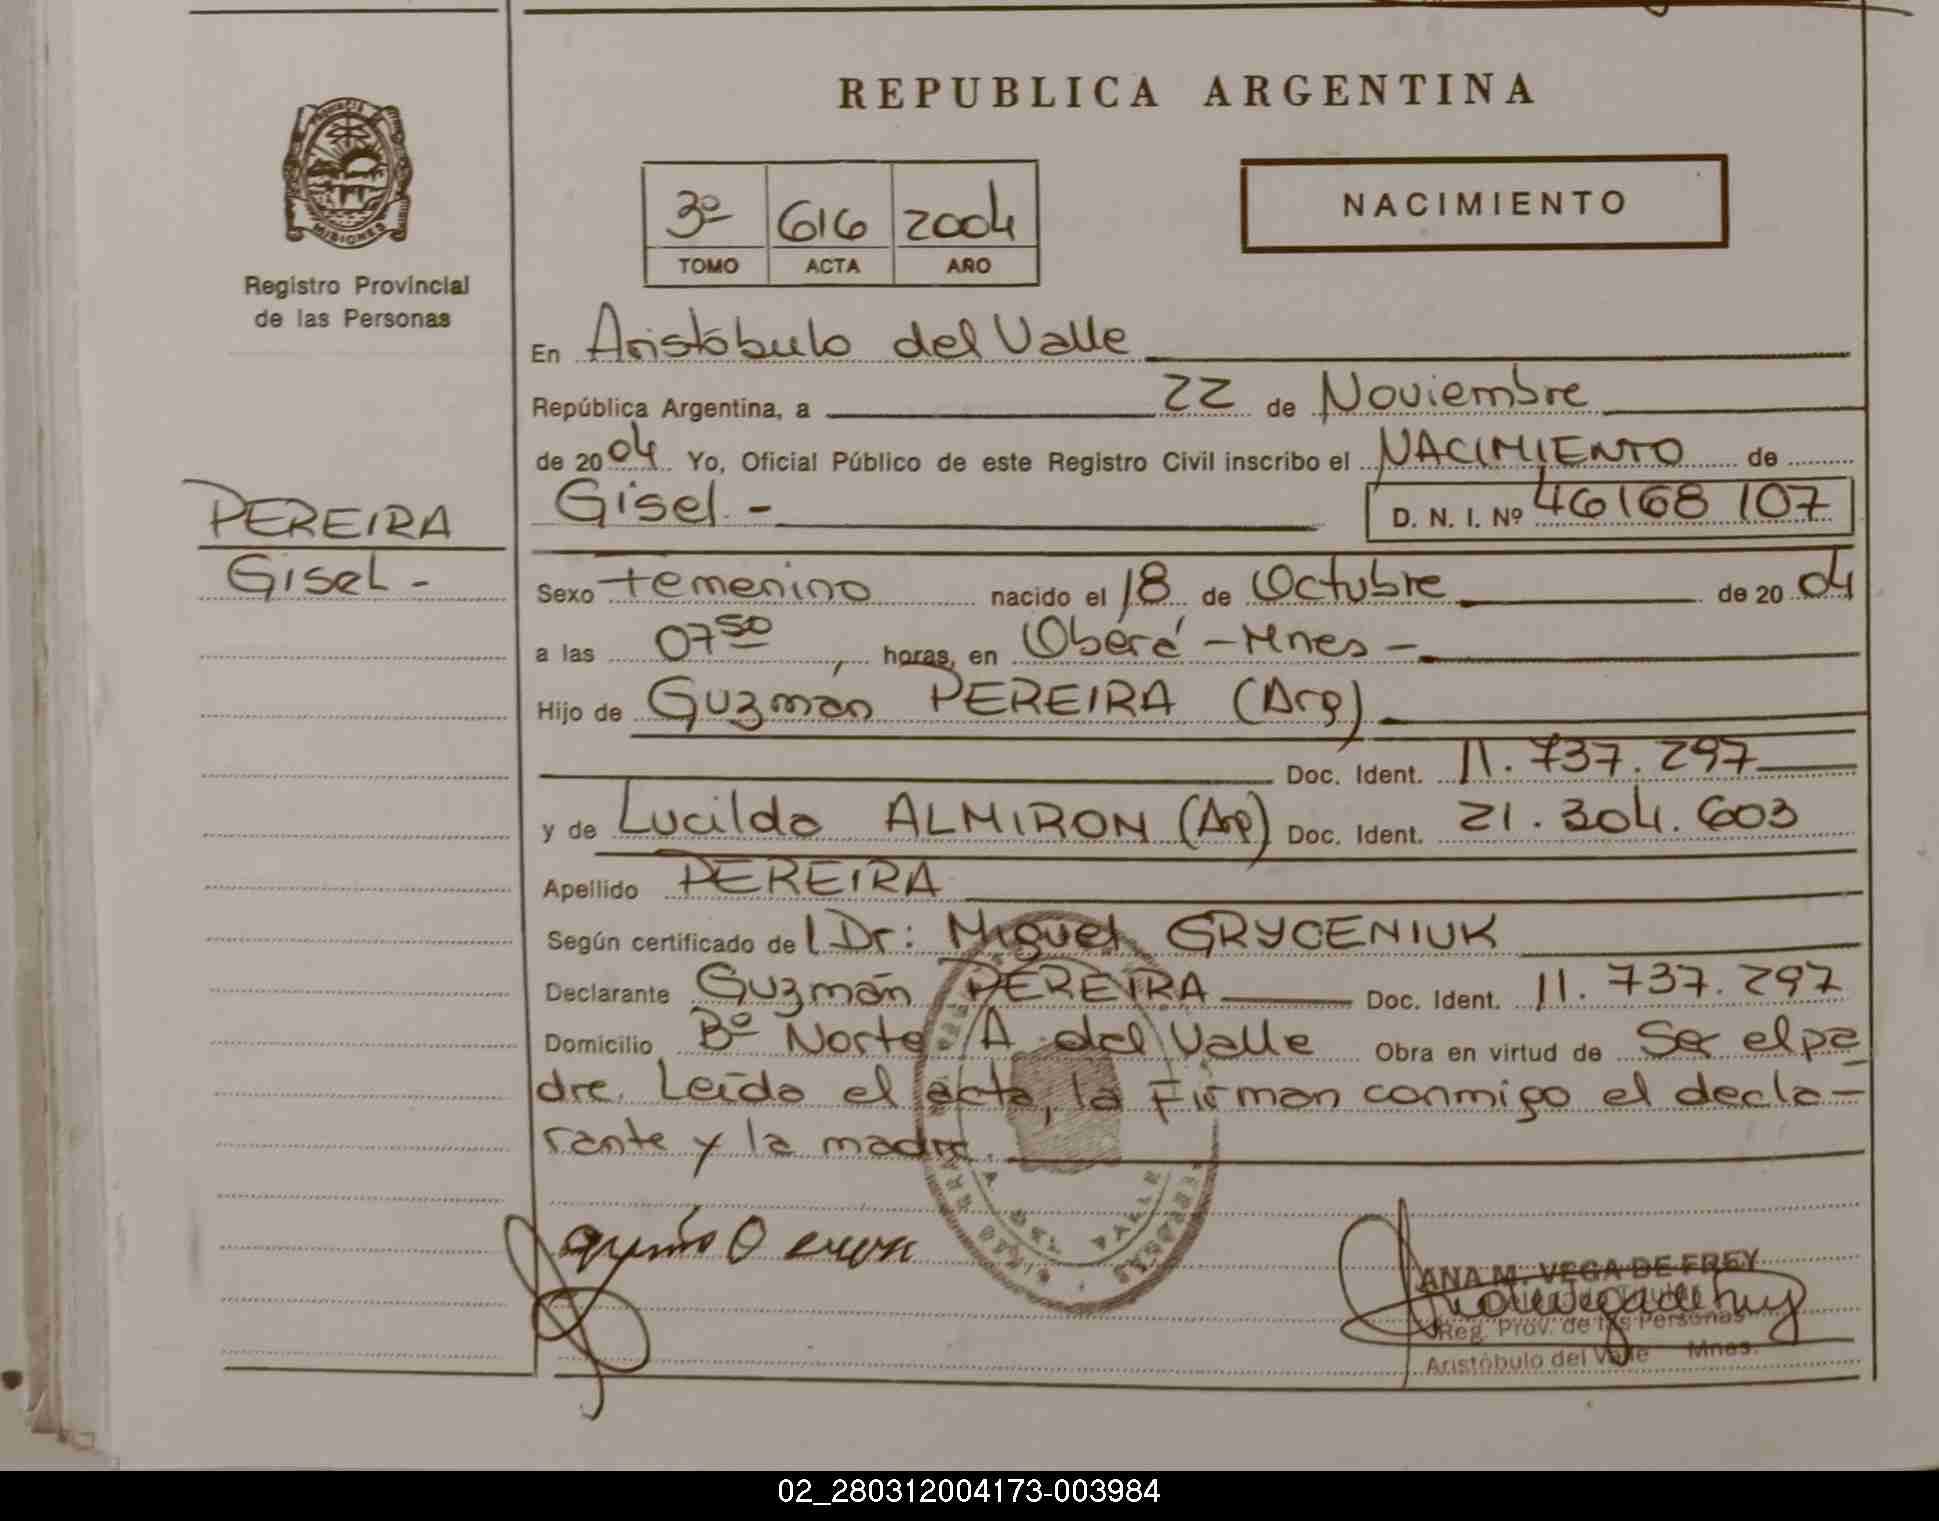 REPUBLICA ARGENTINA
PROVINCIA
MISIONES
Registro Provincial
de las Personas
3º 616 2004
TOMO ACTA AÑO
NACIMIENTO
En Aristóbulo del Valle
República Argentina, a 22 de Noviembre
de 2004 Yo, Oficial Público de este Registro Civil inscribo el NACIMIENTO de
Gisel -
D. N. I. Nº 46168107
PEREIRA
Gisel -
Sexo Femenino nacido el 18 de Octubre de 2004
a las 07 50, horas, en Oberá - Mnes -
Hijo de Guzmán PEREIRA (Arg)
Doc. Ident. 11.737.297
y de Lucilda ALMIRON (Arg) Doc. Ident. 21.304.603
Apellido PEREIRA
Según certificado de l Dr: Miguel GRYCENIUK
Declarante Guzmán PEREIRA Doc. Ident. 11.737.297
Domicilio Bº Norte A. del Valle Obra en virtud de ser el pa
dre. Leída el acta, la Firman conmigo el decla-
rante y la madre.
ANA M. VEGA DE FREY
Reg. Prov. de las Personas
Aristóbulo del Valle Mnes.
02_280312004173-003984